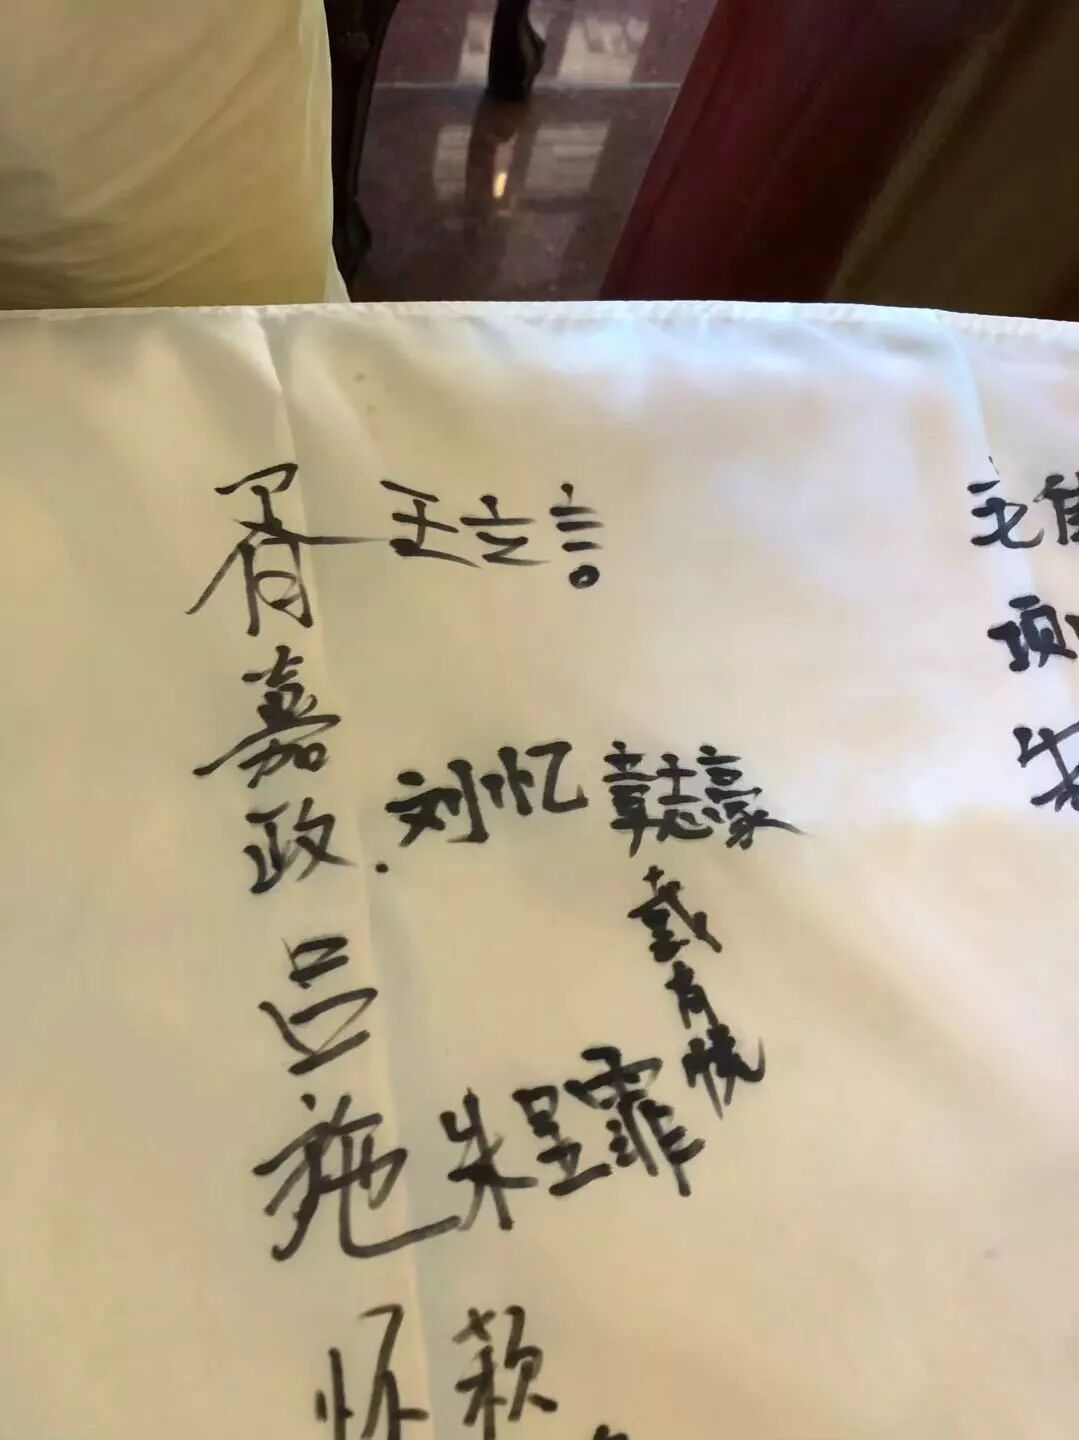 胥嘉政
王立言
吕施
刘忆
韩志豪
戴育悦
朱呈霏
怀颖
毛
项
朱